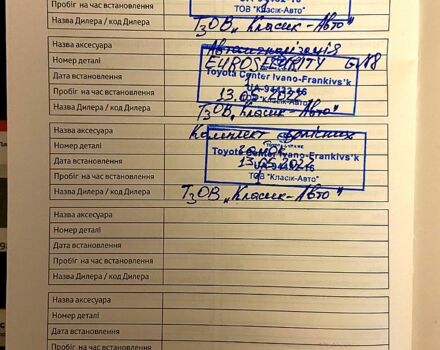 Пробіг на час встановлення
ТОВ "Класік-Авто"
Назва Дилера / код Дилера ТзОВ „Класик-Авто"
Назва аксесуара Автосигналізація
Номер деталі EUROSECURITY
Toyota Center Ivano-Frankivs'k
Дата встановлення
UA-94492-16
Пробіг на час встановлення 13.05.2022
"Класік-Авто"
Назва Дилера / Код Дилера ТзОВ „Класик-Авто"
Назва аксесуара Комплект
Номер деталі
Toyota Center Ivano-Frankivs'k
Дата встановлення 13.05.2022
UA-94492-16
Пробіг на час встановлення
ТОВ "Класік-Авто"
Назва Дилера / Код Дилера ТзОВ „Класик-Авто"
Назва аксесуара
Номер деталі
Дата встановлення
Пробіг на час встановлення
Назва Дилера / Код Дилера
Назва аксесуара
Номер деталі
Дата встановлення
Пробіг на час встановлення